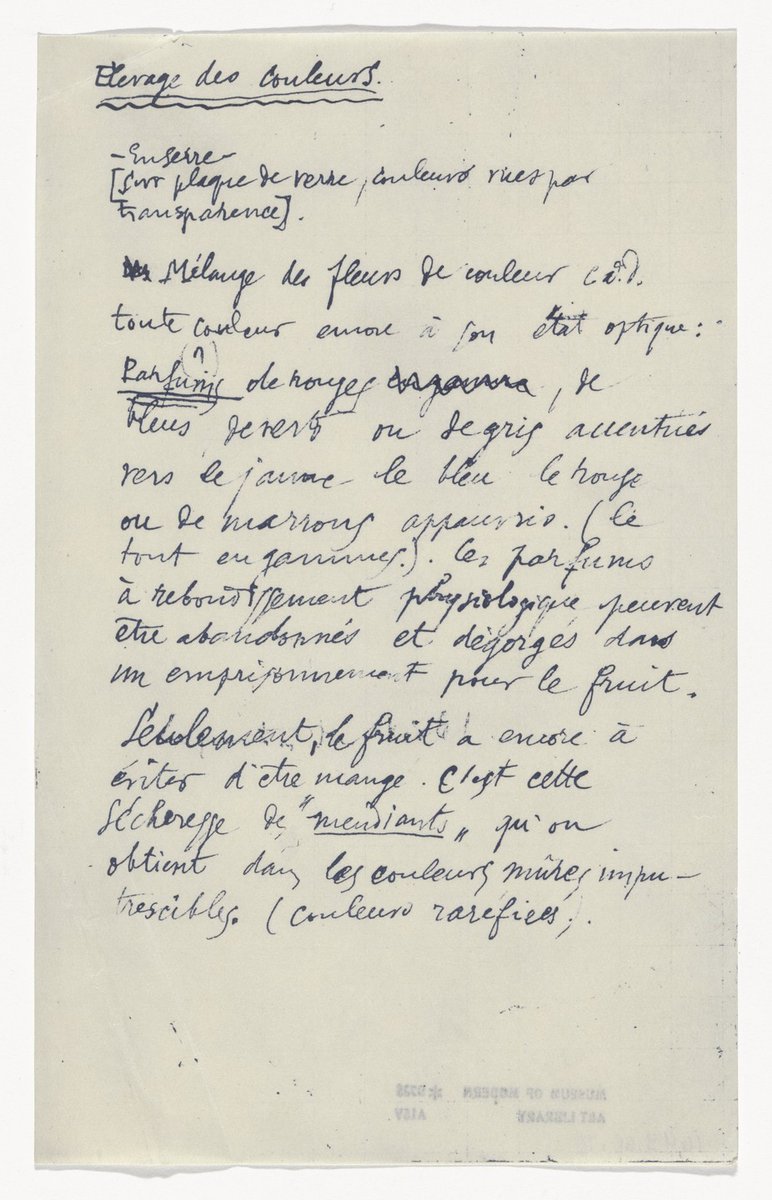 Elevage des couleurs.
- En serre -
[sur plaque de verre, couleurs vues par
transparence].
Mélange des fleurs de couleur c à d.
toute couleur encore à son état optique:
(?)
Parfums de rouges en gamme, de
bleus, de verts ou de gris accentués
vers le jaune le bleu le rouge
ou de marrons appauvris. (le
tout en gammes.). les parfums
à rebondissement physiologique peuvent
être abandonnés et dégorgés dans
un emprisonnement pour le fruit.
Seulement, le fruit a encore à
éviter d'être mangé. C'est cette
sécheresse de "mendiants" qu'on
obtient dans les couleurs mûres impu-
trescibles. (couleurs raréfiées).
MUSEUM OF MODERN
ART LIBRARY